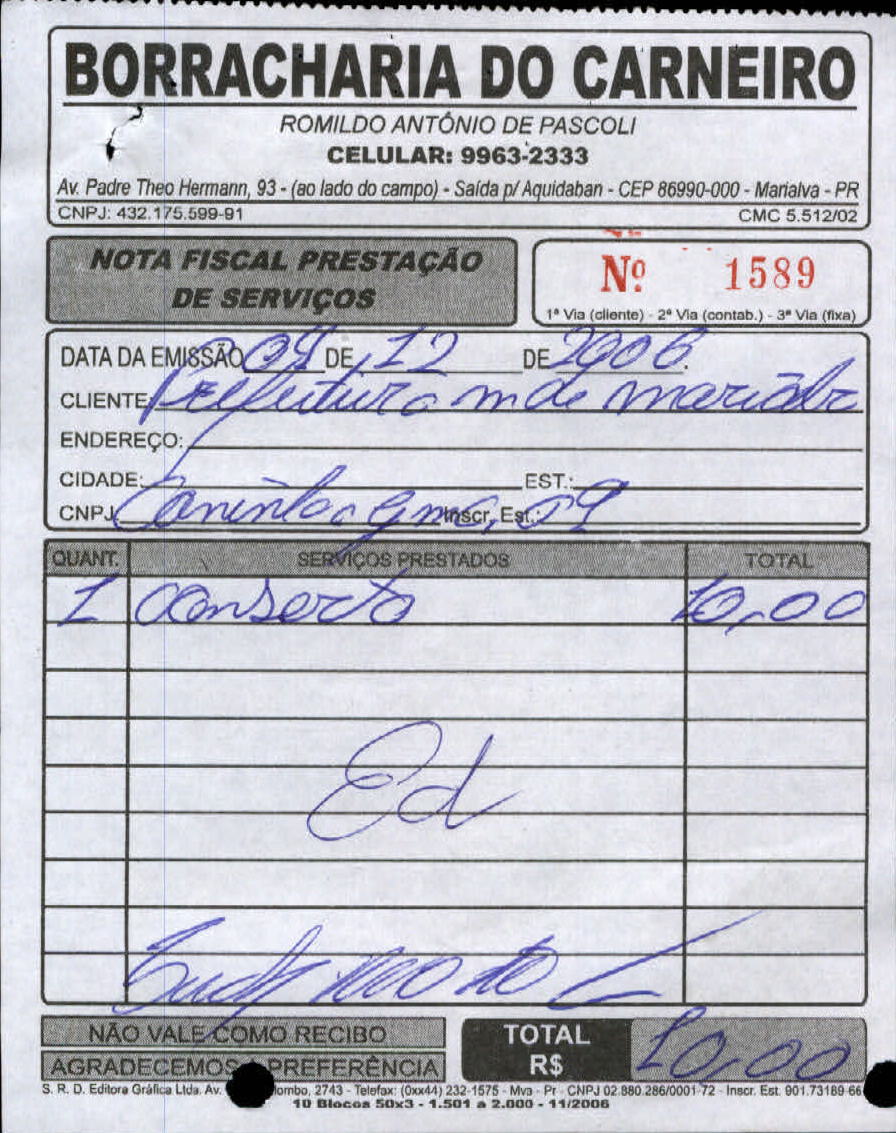 BORRACHARIA DO CARNEIRO
ROMILDO ANTÔNIO DE PASCOLI
CELULAR: 9963-2333
Av. Padre Theo Hermann, 93 - (ao lado do campo) - Saída p/ Aquidaban - CEP 86990-000 - Marialva - PR
CNPJ: 432.175.599-91 CMC 5.512/02
NOTA FISCAL PRESTAÇÃO
DE SERVIÇOS
Nº 1589
1ª Via (cliente) - 2ª Via (contab.) - 3ª Via (fixa)
DATA DA EMISSÃO DE 12 DE 2006.
CLIENTE: Prefeitura m de marialva
ENDEREÇO:
CIDADE: EST.:
CNPJ Inscr. Est.:
QUANT. SERVIÇOS PRESTADOS TOTAL
1 Conserto 10,00
Ed
NÃO VALE COMO RECIBO
AGRADECEMOS PREFERÊNCIA
TOTAL
R$ 10,00
S. R. D. Editora Gráfica Ltda. Av. ombo, 2743 - Telefax: (0xx44) 232-1575 - Mva - Pr - CNPJ 02.880.286/0001-72 - Inscr. Est. 901.73189-66
10 Blocos 50x3 - 1.501 a 2.000 - 11/2006